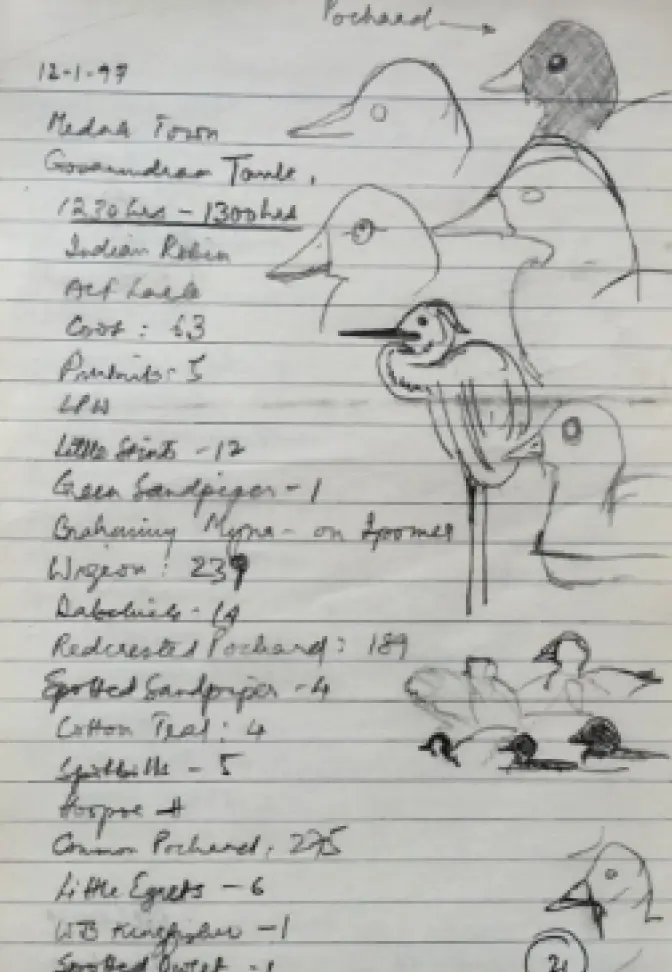 Pochard
12-1-97
Medak Town
Tank,
1230hrs - 1300hrs
Indian Robin
Coot : 63
5
LPW
Little Stints - 12
Green Sandpiper - 1
Brahminy Myna - on Ipomea
Wigeon : 239
Dabchick - 14
Redcrested Pochard : 189
Spotted Sandpiper - 4
Cotton Teal : 4
Spotbills - 5
Hoopoe
Common Pochard : 275
Little Egrets - 6
WB Kingfisher - 1
Spotted Owlet - 1
21